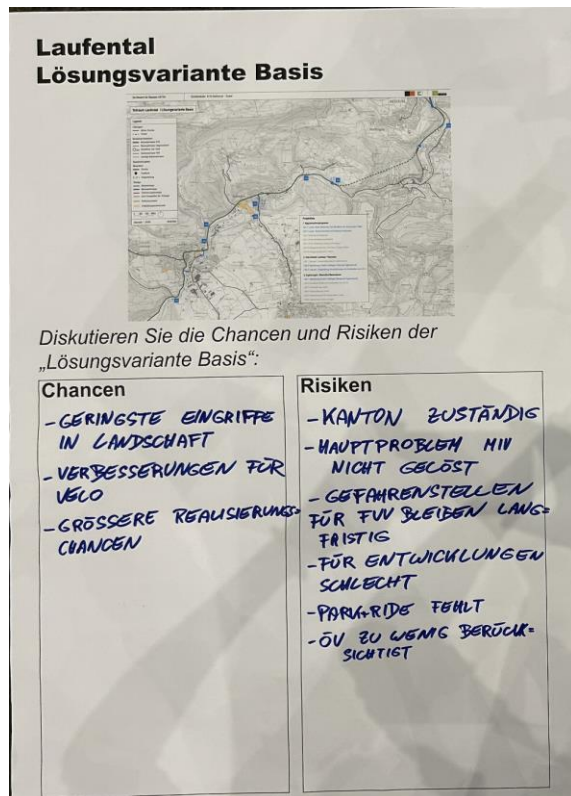 Laufental
Lösungsvariante Basis
Diskutieren Sie die Chancen und Risiken der
„Lösungsvariante Basis“:
Chancen
- GERINGSTE EINGRIFFE
IN LANDSCHAFT
- VERBESSERUNGEN FÜR
VELO
- GRÖSSERE REALISIERUNGS-
CHANCEN
Risiken
- KANTON ZUSTÄNDIG
- HAUPTPROBLEM MIV
NICHT GELÖST
- GEFAHRENSTELLEN
FÜR FVV BLEIBEN LANG=
FRISTIG
- FÜR ENTWICKLUNGEN
SCHLECHT
- PARK+RIDE FEHLT
- ÖV ZU WENIG BERÜCK=
SICHTIGT